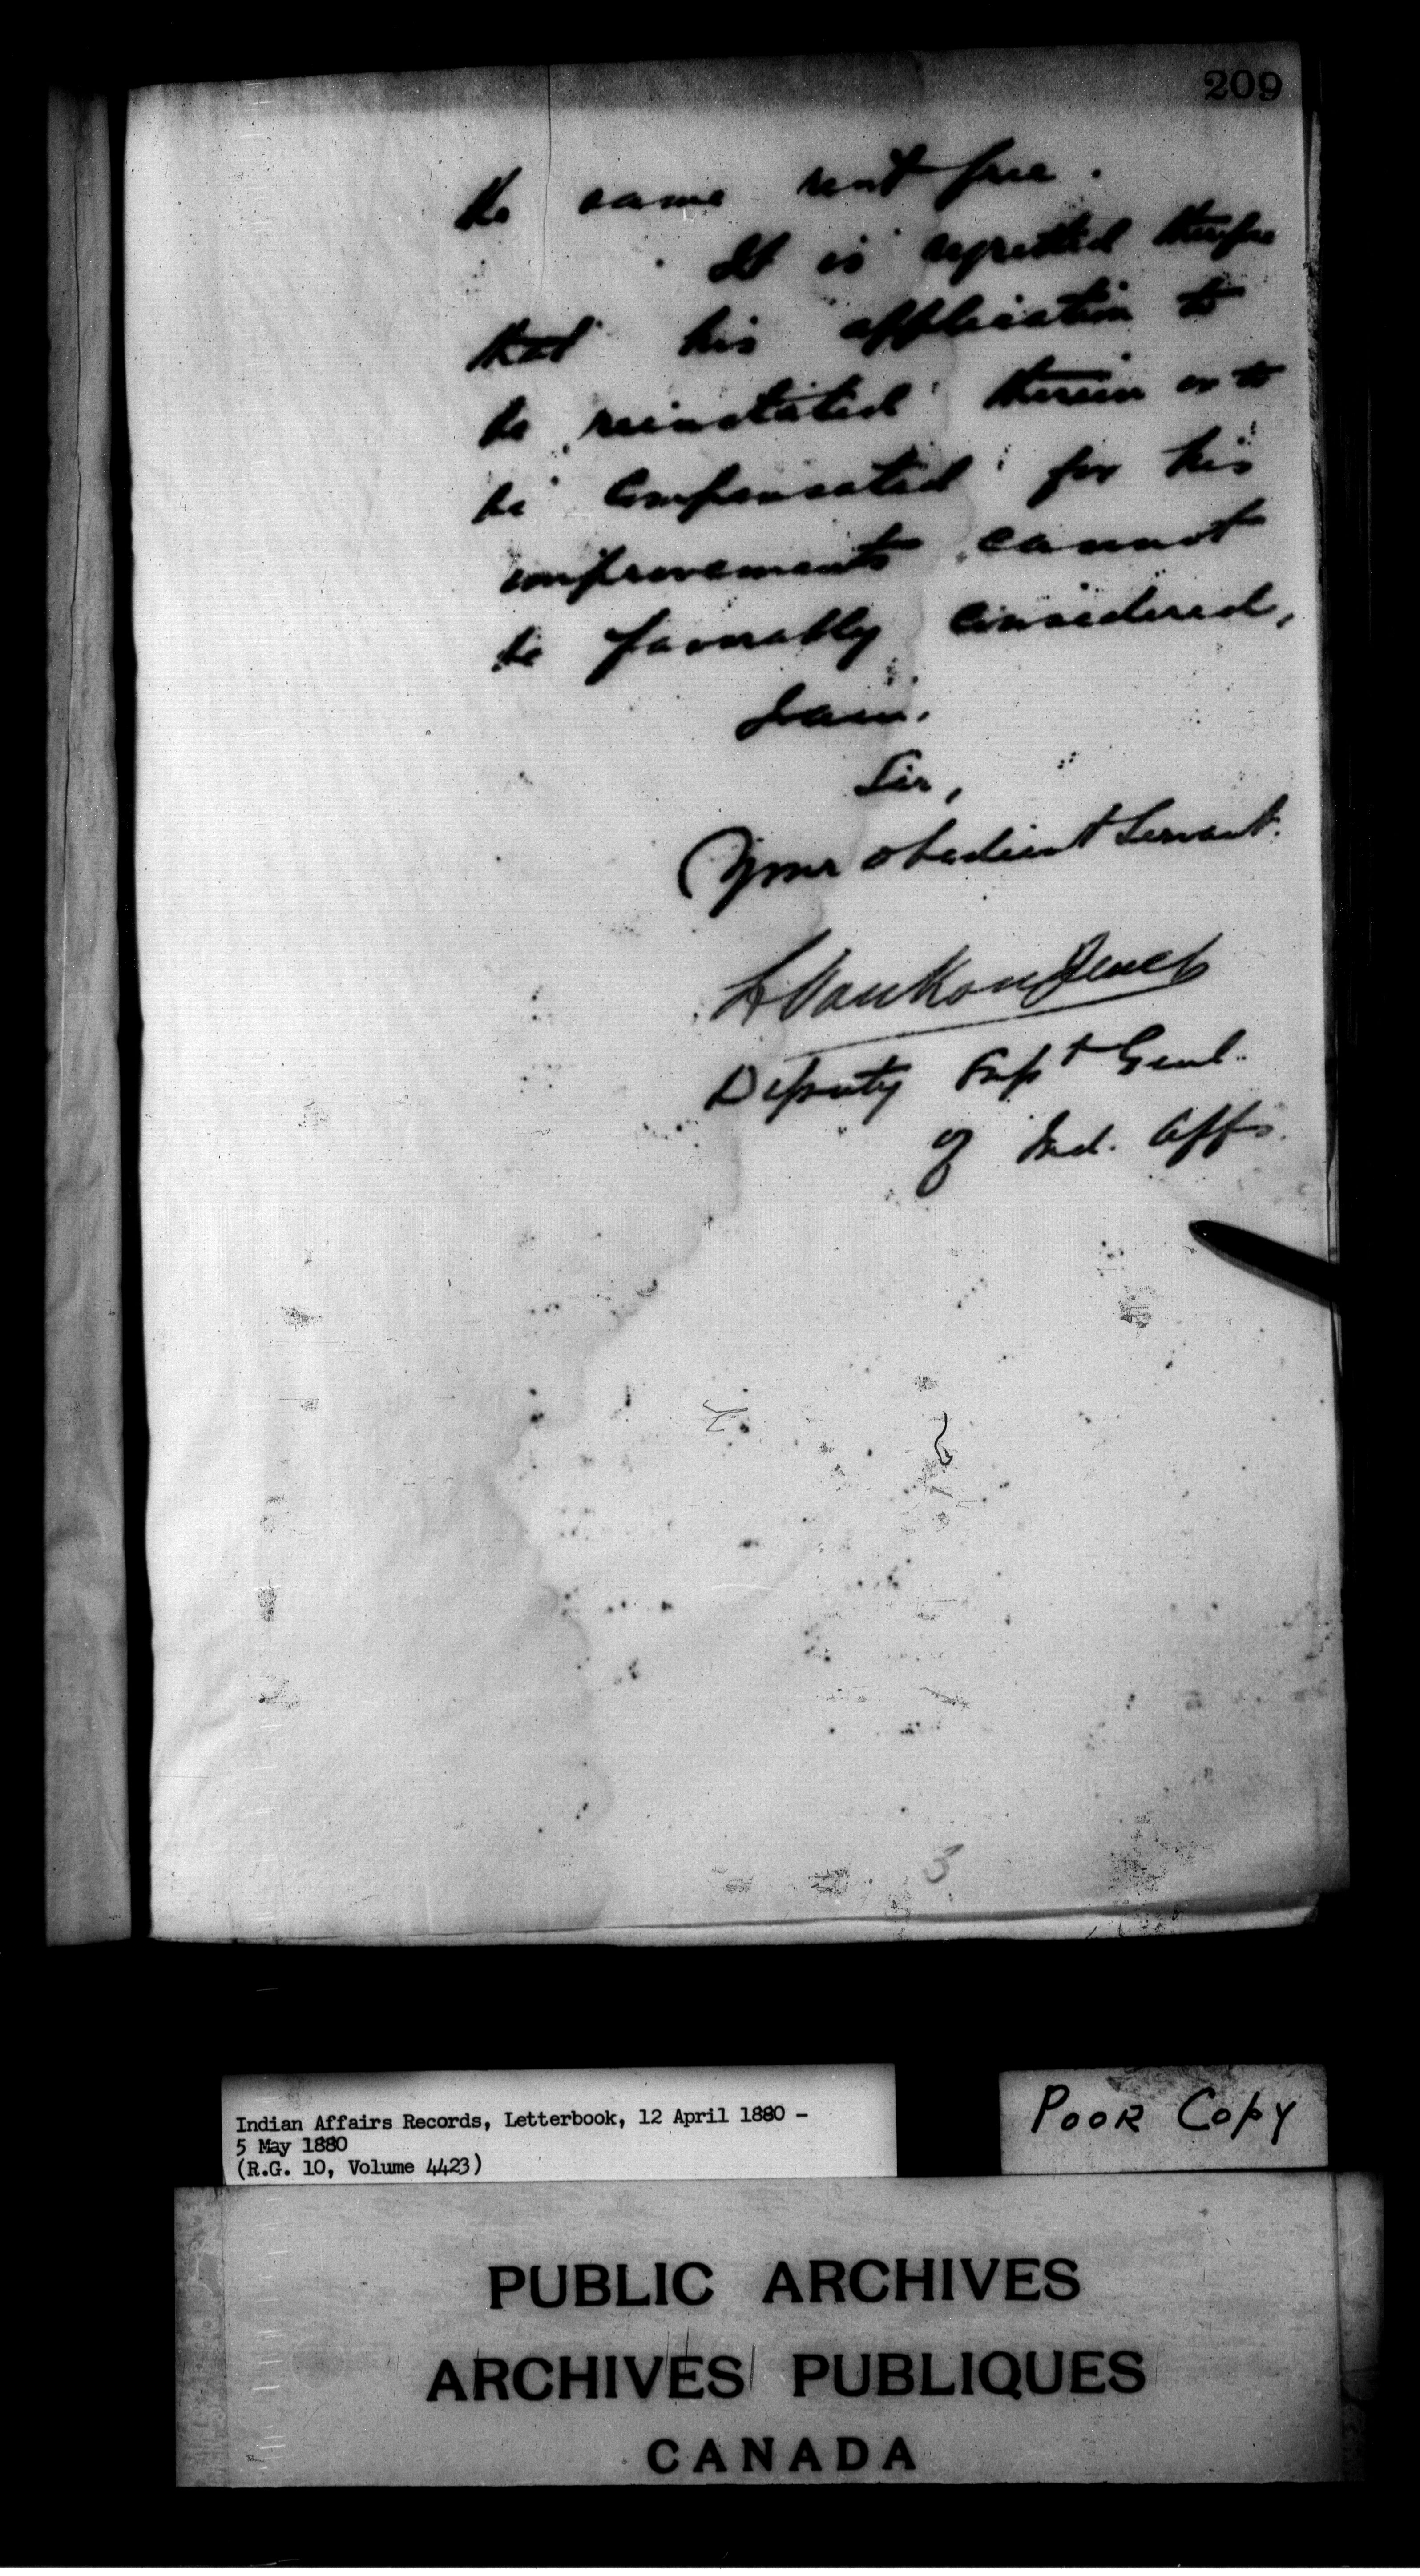 209
the same rent free.
It is regretted therefore
that his application to
be reinstated therein or to
be compensated for his
improvements cannot
be favorably considered,
I am.
Sir,
Your obedient Servant.
L VanKoughnet
Deputy Supt Genl.
of Ind. Affs.
3
Indian Affairs Records, Letterbook, 12 April 1880 -
5 May 1880
(R.G. 10, Volume 4423)
POOR COPY
PUBLIC ARCHIVES
ARCHIVES PUBLIQUES
CANADA